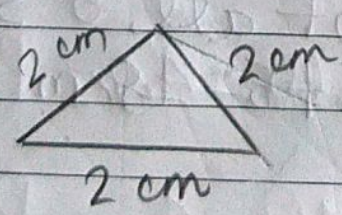 2 cm
2 cm
2 cm